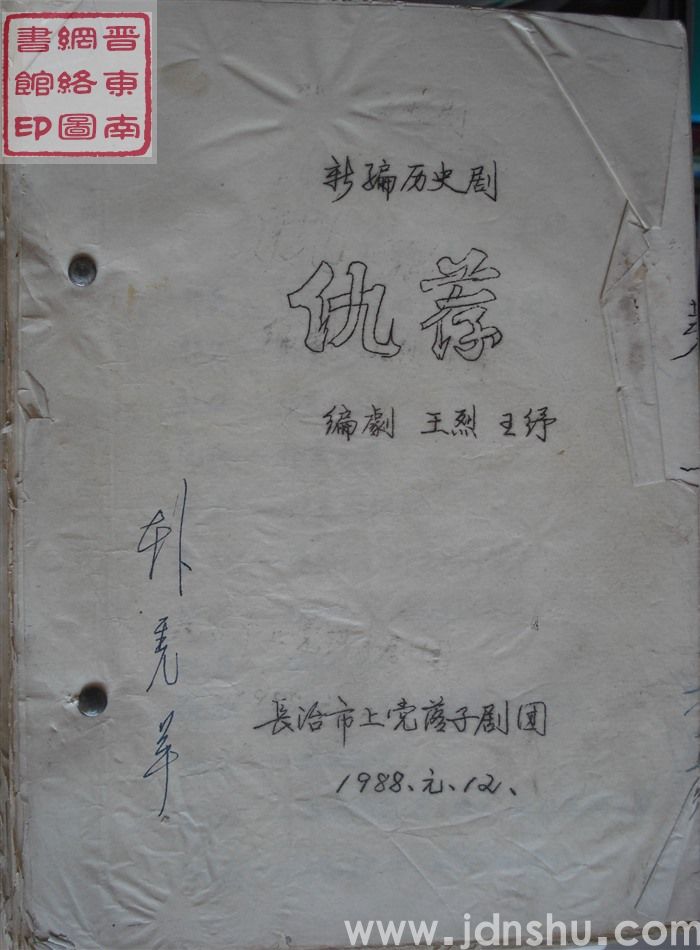 晋東南
網絡圖
書館印
新编历史剧
仇荐
编劇 王烈 王纾
長治市上党落子剧团
1988.元.12.
www.jdnshu.com